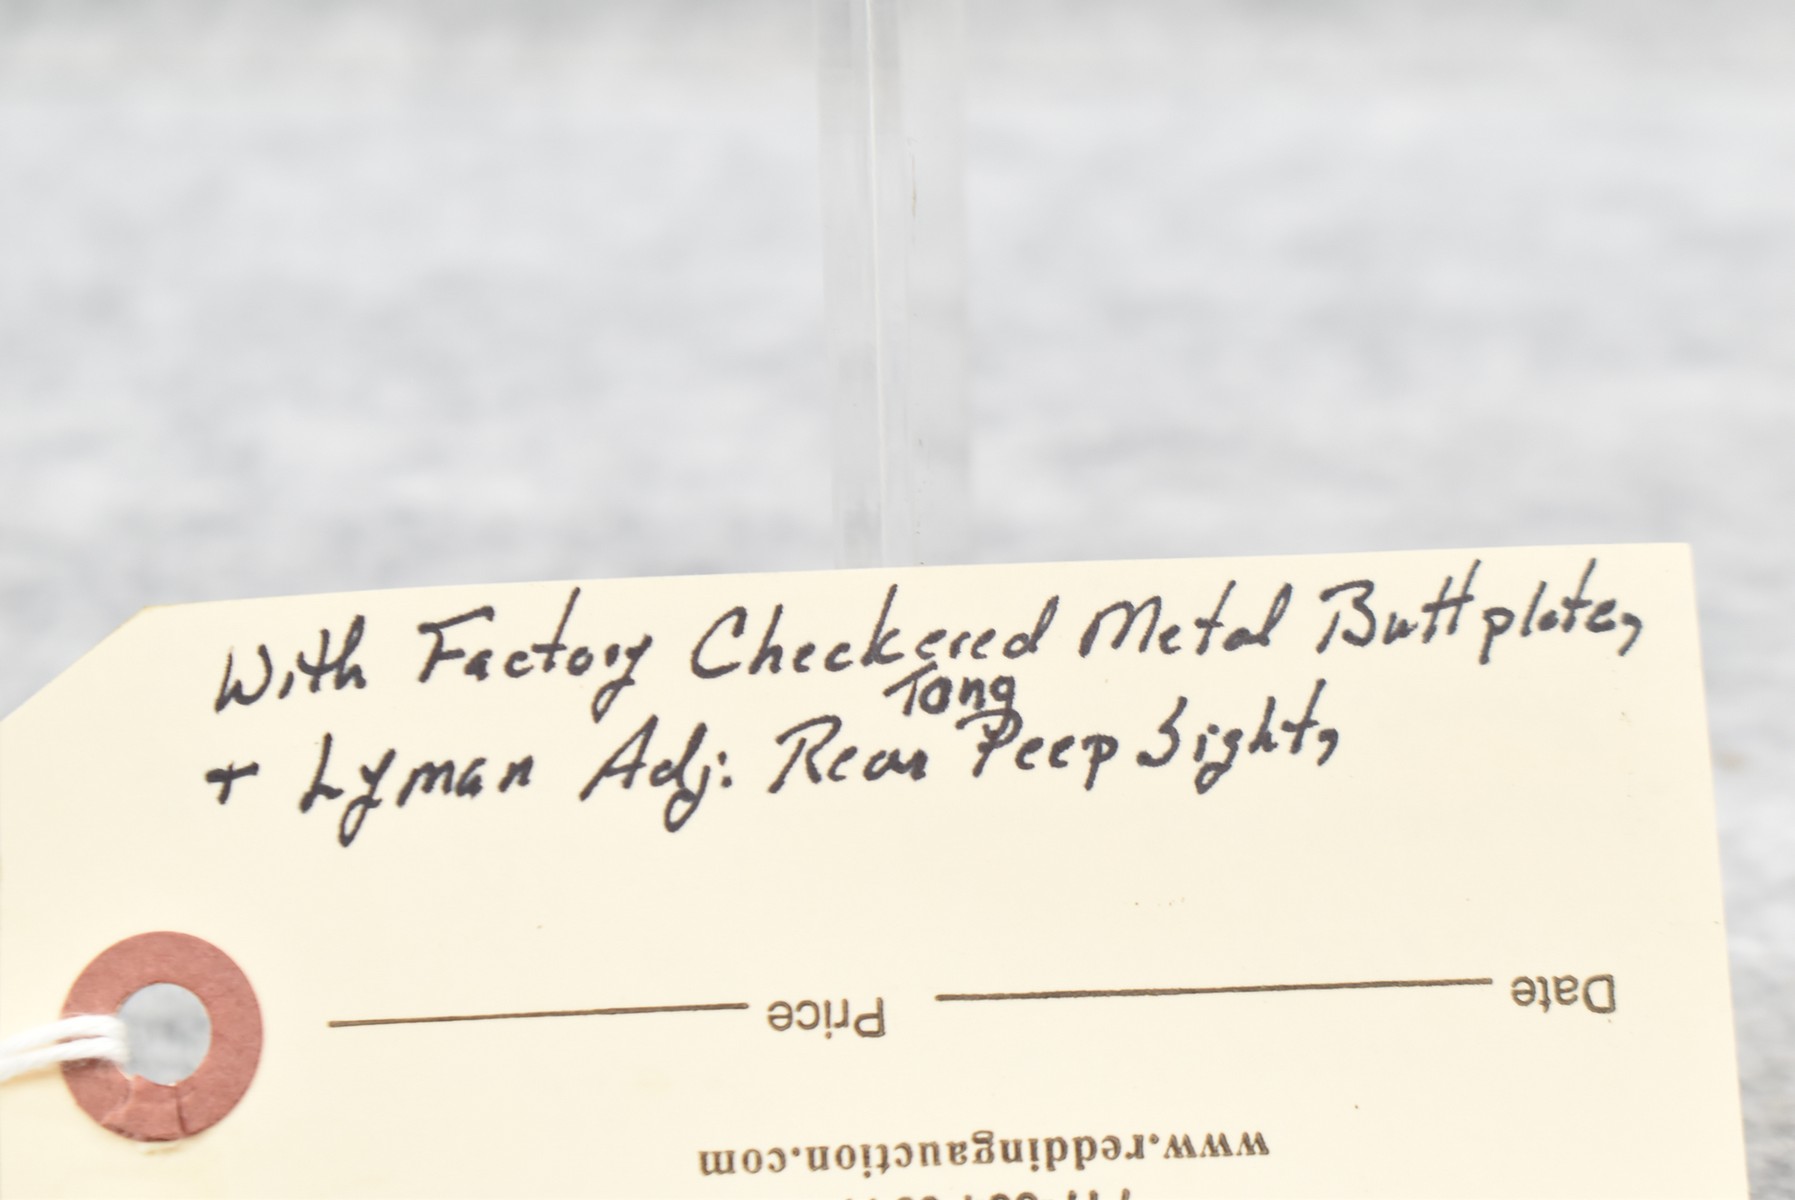 With Factory Checkered Metal Buttplate,
Tang
+ Lyman Adj: Rear Peep Sight,
Date
Price
www.reddingauction.com